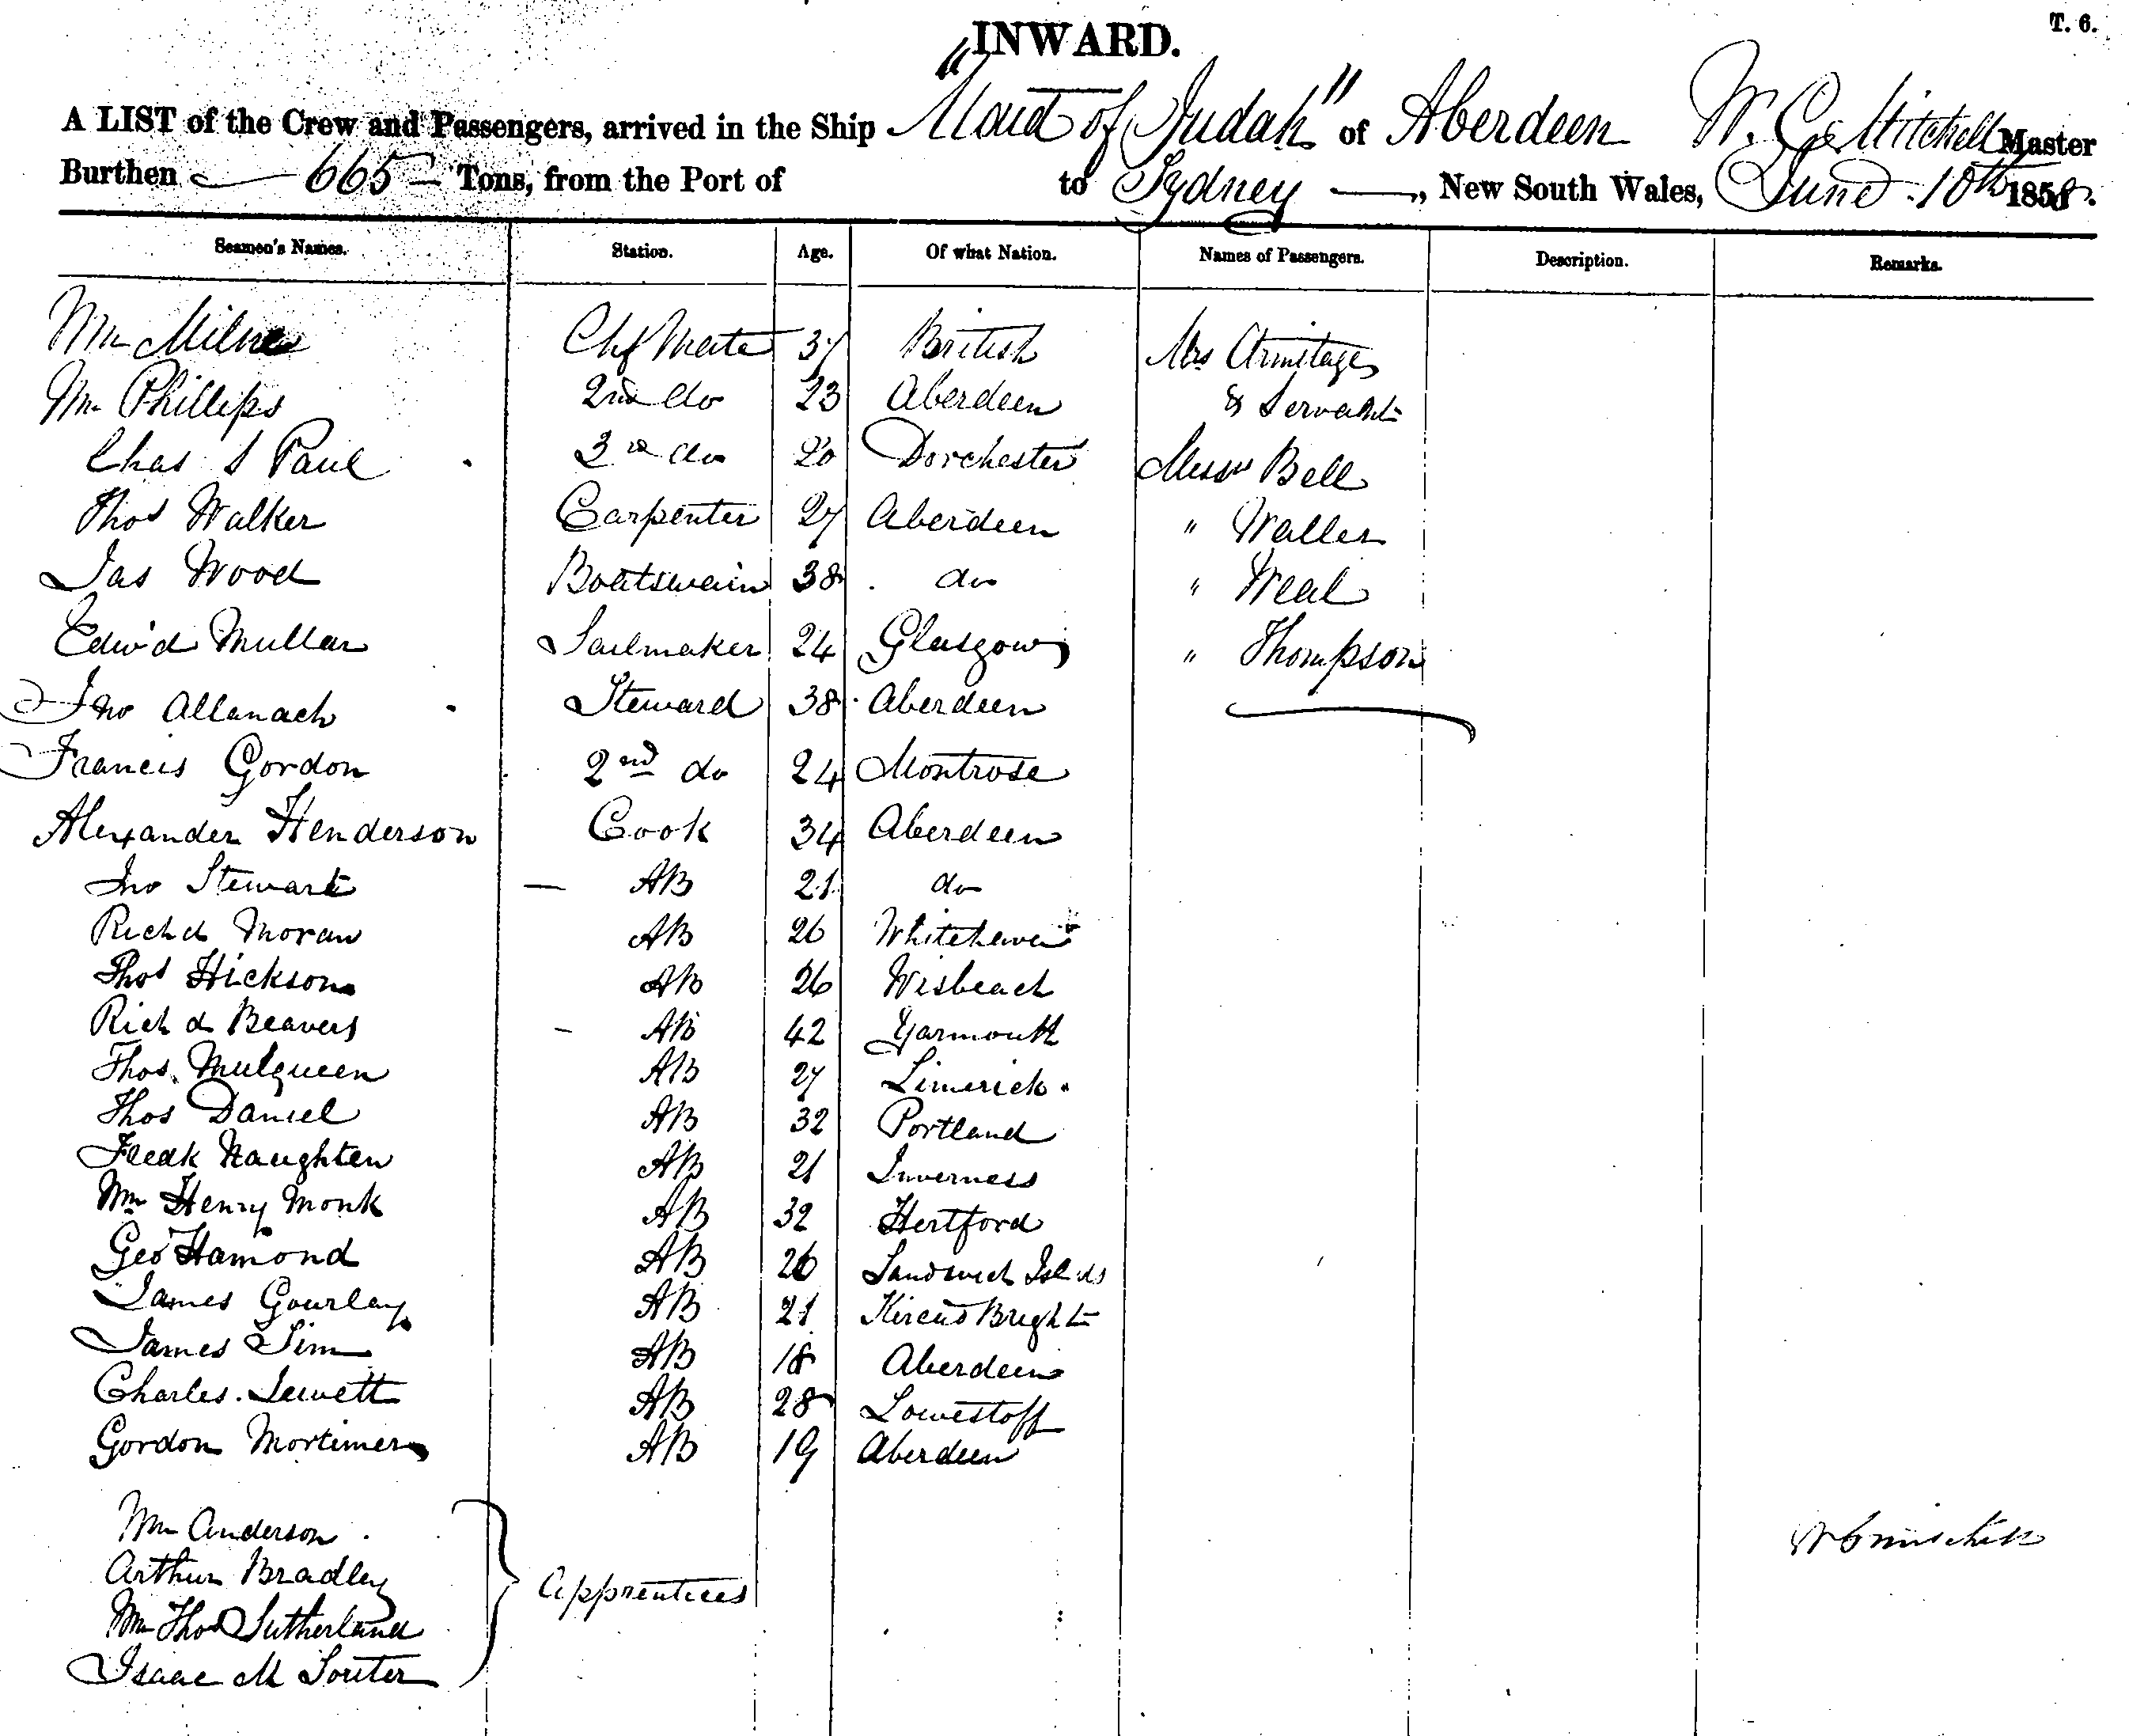 T. 6.
INWARD.
A LIST of the Crew and Passengers, arrived in the Ship "Maid of Judah" of Aberdeen W. C. Mitchell Master
Burthen 665 Tons, from the Port of to Sydney, New South Wales, June 10th 1858.
Seamen's Names. Station. Age. Of what Nation. Names of Passengers. Description. Remarks.
Wm Milne Chf Mate 37 British Mrs Armitage
Wm Phillips 2nd do 23 Aberdeen & Servant
Chas S Paul 3rd do 20 Dorchester Messrs Bell
Thos Walker Carpenter 27 Aberdeen " Waller
Jas Wood Boatswain 38 do " Weal
Edwd Mullar Sailmaker 24 Glasgow " Thompson
Jno Allanach Steward 38 Aberdeen
Francis Gordon 2nd do 24 Montrose
Alexander Henderson Cook 34 Aberdeen
Jno Stewart AB 21 do
Richd Moran AB 26 Whitehaven
Thos Hickson AB 26 Wisbeach
Richd Beavers AB 42 Yarmouth
Thos. Mulqueen AB 27 Limerick
Thos Daniel AB 32 Portland
Fredk Naughten AB 21 Inverness
Wm Henry Monk AB 32 Hertford
Geo Hamond AB 26 Sandwich Islds
James Gourlay AB 21 Kircud Bright
James Sim AB 18 Aberdeen
Charles Jewett AB 28 Lowestoff
Gordon Mortimer AB 19 Aberdeen
Wm Anderson
Arthur Bradley
Apprentices
Wm Thos Sutherland
Isaac M Souter
W C Mitchell